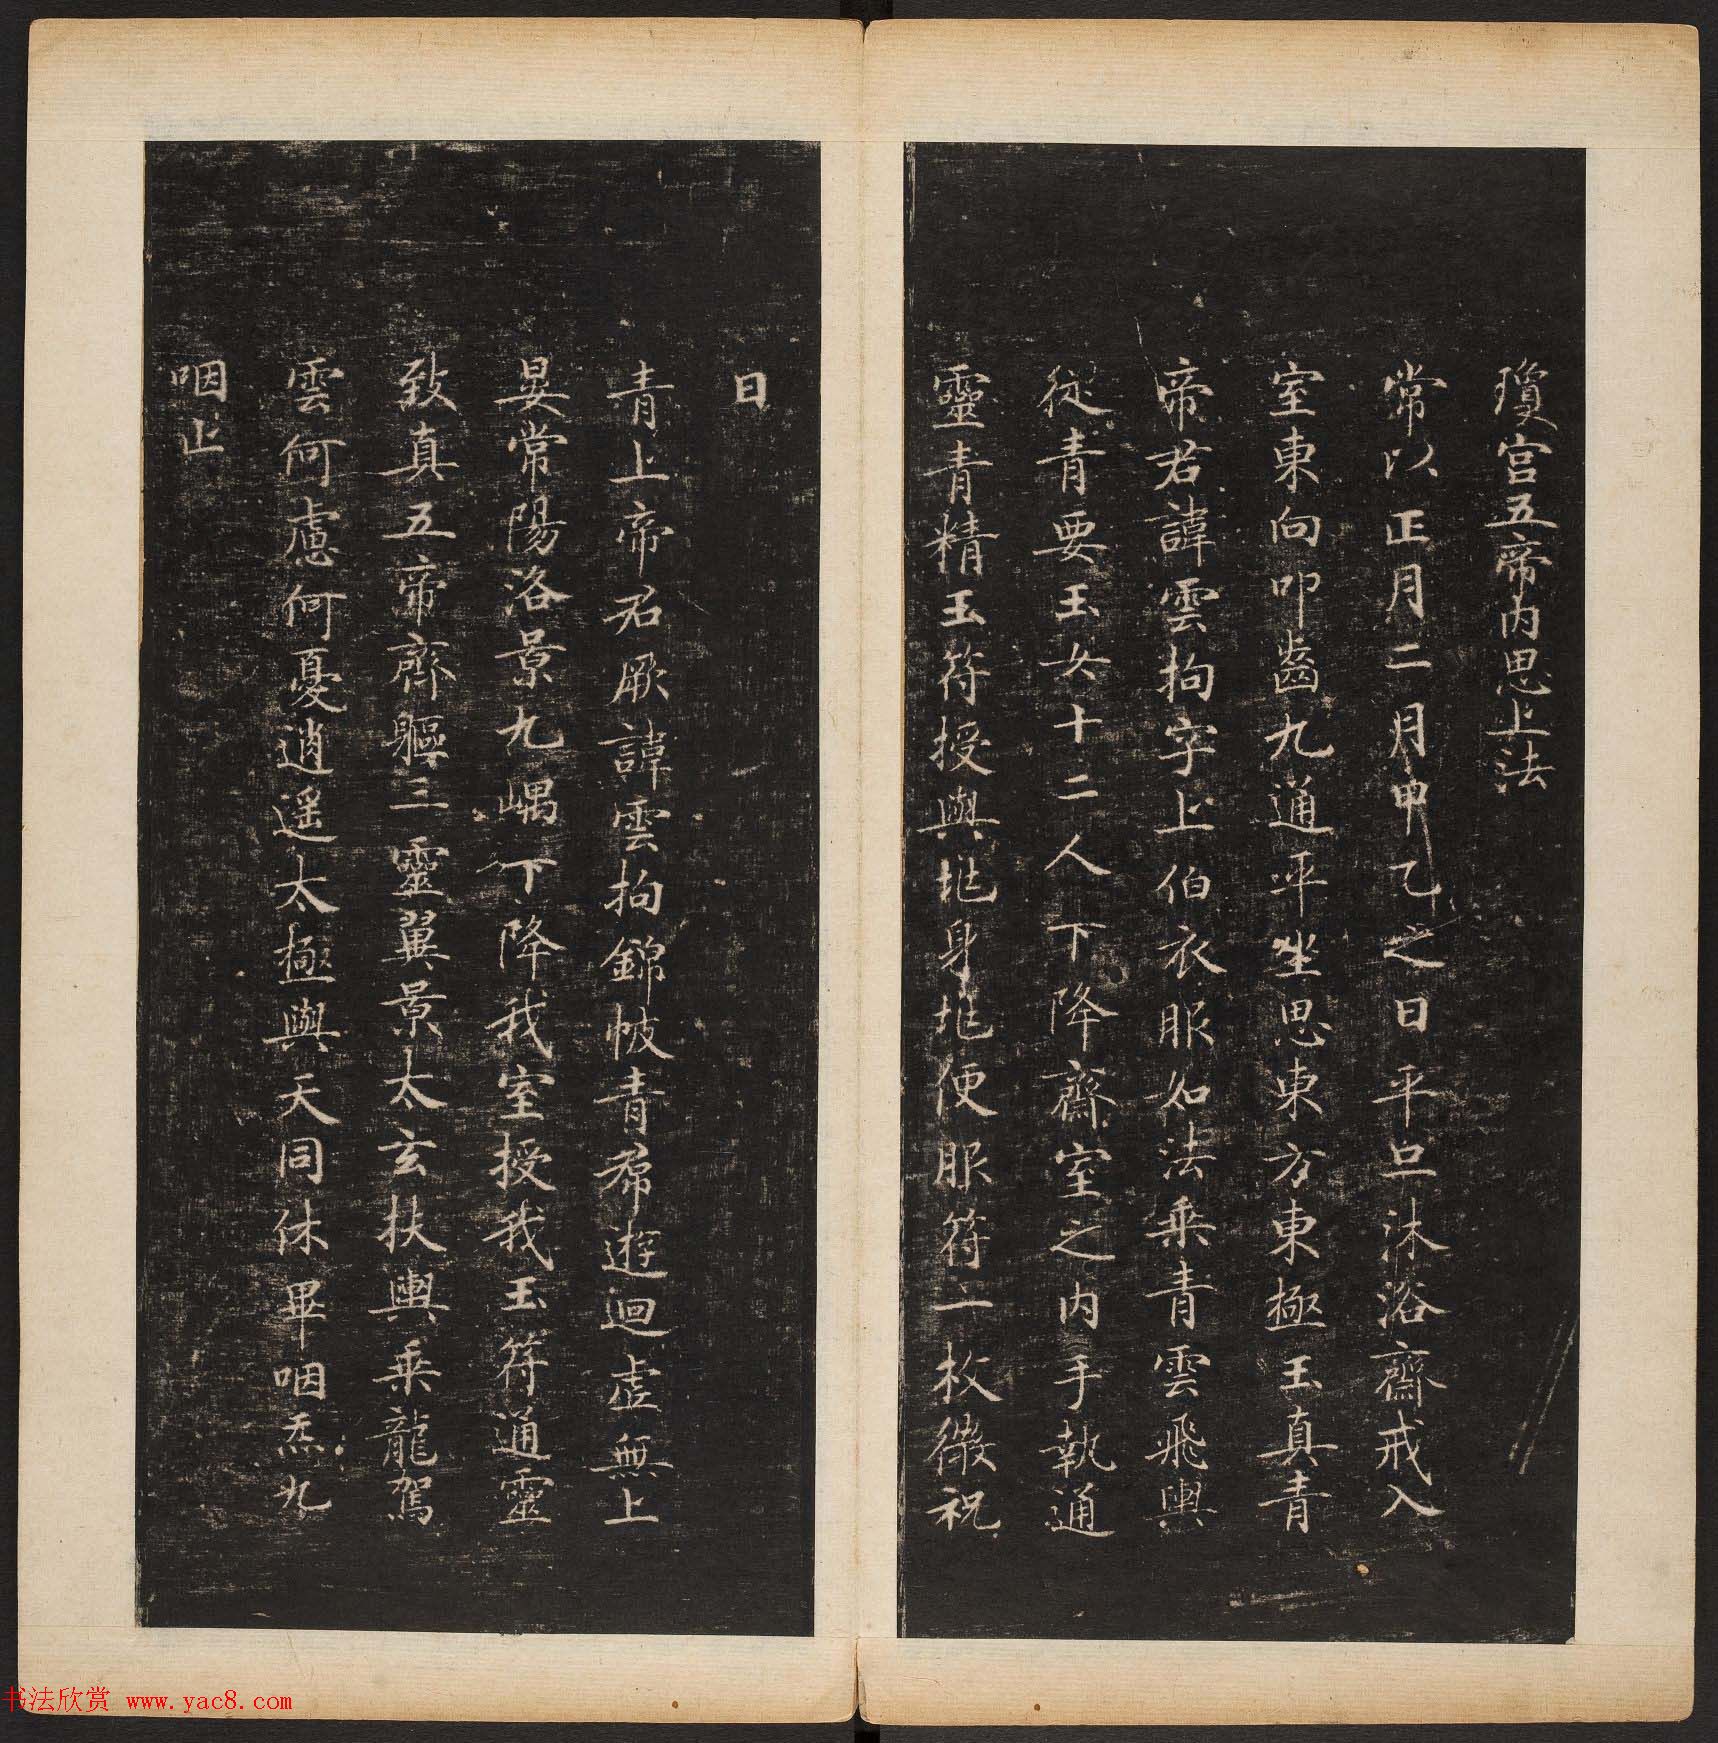 瓊宫五帝内思上法
常以正月二月甲乙之日平旦沐浴齋戒入
室東向叩齒九通平坐思東方東極玉真青
帝君諱雲拘字上伯衣服如法乗青雲飛輿
従青要玉女十二人下降齋室之内手執通
靈青精玉符授與兆身兆便服符一枚微祝
曰
青上帝君厥諱雲拘錦帔青帬遊迴虚無上
晏常陽洛景九嵎下降我室授我玉符通靈
致真五帝齊軀三靈翼景太玄扶輿乗龍駕
雲何慮何憂逍遥太極與天同休畢咽炁九
咽止
书法欣赏 www.yac8.com